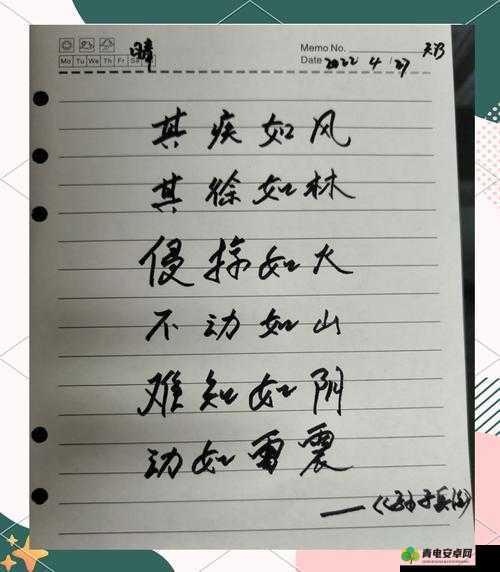 晴
Memo No.
Mo Tu We Th Fr Sa
Date 2022 4 / 27
其疾如风
其徐如林
侵掠如火
不动如山
难知如阴
动如雷震
——《孙子兵法》
青电安卓网